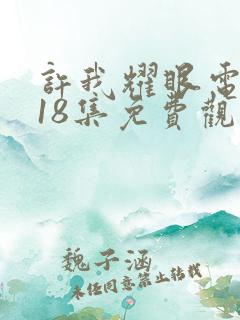 許我耀眼電
18集免費觀
魏子涵
未經同意禁止轉載